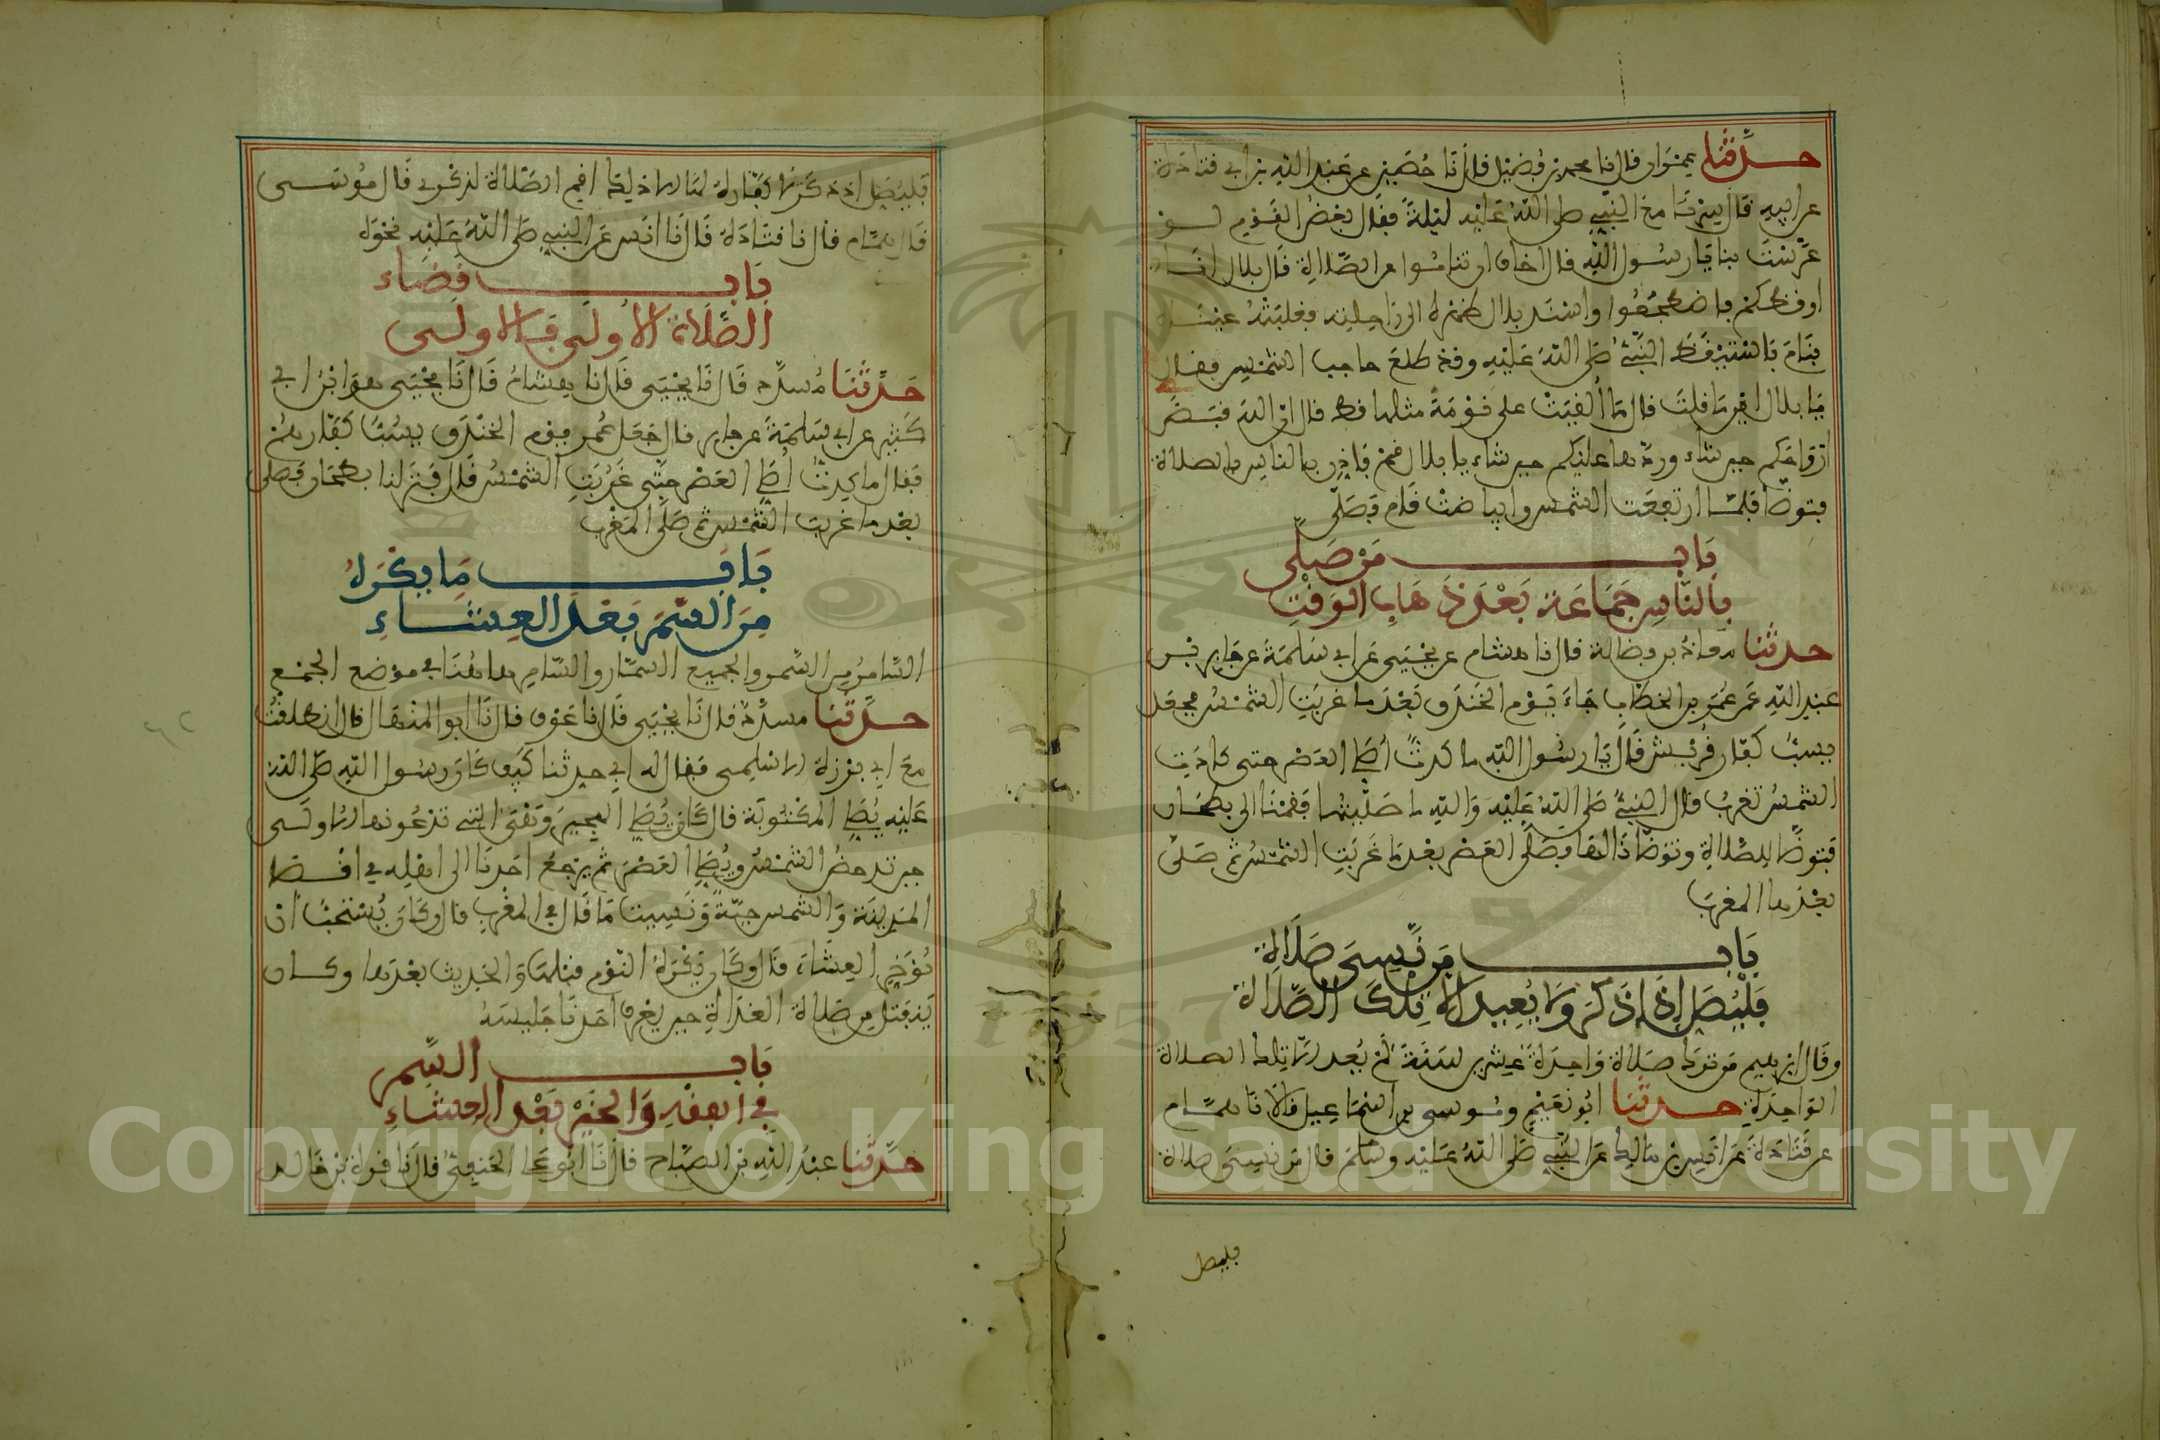 حدثنا عمران قال نا محمد بن فضيل قال نا حصين عن عبد الله بن ابي قتادة
عن ابيه قال سرنا مع النبي صلى الله عليه ليلة فقال بعض القوم لو
عرست بنا يا رسول الله قال اخاف ان تناموا عن الصلاة قال بلال انا
اوقظكم فاضطجعوا واسند بلال ظهره الى راحلته فغلبته عيناه
فنام فاستيقظ النبي صلى الله عليه وقد طلع حاجب الشمس فقال
يا بلال اين ما قلت قال ما ألقيت علي نومة مثلها قط قال ان الله قبض
ارواحكم حين شاء وردها عليكم حين شاء يا بلال قم فاذن بالناس بالصلاة
فتوضأ فلما ارتفعت الشمس وابياضت قام فصلى
باب من صلى
بالناس جماعة بعد ذهاب الوقت
حدثنا معاذ بن فضالة قال نا هشام عن يحيى عن ابي سلمة عن جابر بن
عبد الله عن عمر بن الخطاب جاء يوم الخندق بعد ما غربت الشمس فجعل
يسب كفار قريش قال يا رسول الله ما كدت أصلي العصر حتى كادت
الشمس تغرب قال النبي صلى الله عليه والله ما صليتها فقمنا الى بطحان
فتوضأ للصلاة وتوضأنا لها فصلى العصر بعد ما غربت الشمس ثم صلى
بعدها المغرب
باب من نسي صلاة
فليصل إذا ذكر ولا يعيد الا تلك الصلاة
وقال ابرهيم من ترك صلاة واحدة عشرين سنة لم يعد الا تلك الصلاة
الواحدة حدثنا ابو نعيم وموسى بن اسماعيل قالا نا همام
عن قتادة عن انس بن مالك عن النبي صلى الله عليه وسلم قال من نسي صلاة
فليصل
فليصل اذا ذكرها لا كفارة لها الا ذلك اقم الصلاة لذكري قال موسى
قال همام قال نا قتادة قال نا انس عن النبي صلى الله عليه نحوه
باب قضاء
الصلاة الاولى فالاولى
حدثنا مسدد قال نا يحيى قال نا هشام قال نا يحيى هو ابن ابي
كثير عن ابي سلمة عن جابر قال جعل عمر يوم الخندق يسب كفارهم
فقال ما كدت أصلي العصر حتى غربت الشمس قال فنزلنا بطحان فصلى
بعد ما غربت الشمس ثم صلى المغرب
باب ما يكره
من السمر بعد العشاء
السامر من السمر والجميع السمار والسامر هاهنا في موضع الجمع
حدثنا مسدد قال نا يحيى قال نا عوف قال نا ابو المنهال قال انطلقت
مع ابي برزة الاسلمي فقال له ابي حدثنا كيف كان رسول الله صلى الله
عليه يصلي المكتوبة قال كان يصلي الهجير وهي التي تدعونها الاولى
حين تدحض الشمس ويصلي العصر ثم يرجع احدنا الى اهله في اقصا
المدينة والشمس حية ونسيت ما قال في المغرب قال وكان يستحب ان
يؤخر العشاء قال وكان يكره النوم قبلها والحديث بعدها وكان
ينفتل من صلاة الغداة حين يعرف احدنا جليسه
باب السمر
في الفقه والخير بعد العشاء
حدثنا عبد الله بن الصباح قال نا ابو علي الحنفي قال نا قرة بن خالد
Copyright © King Saud University
1957